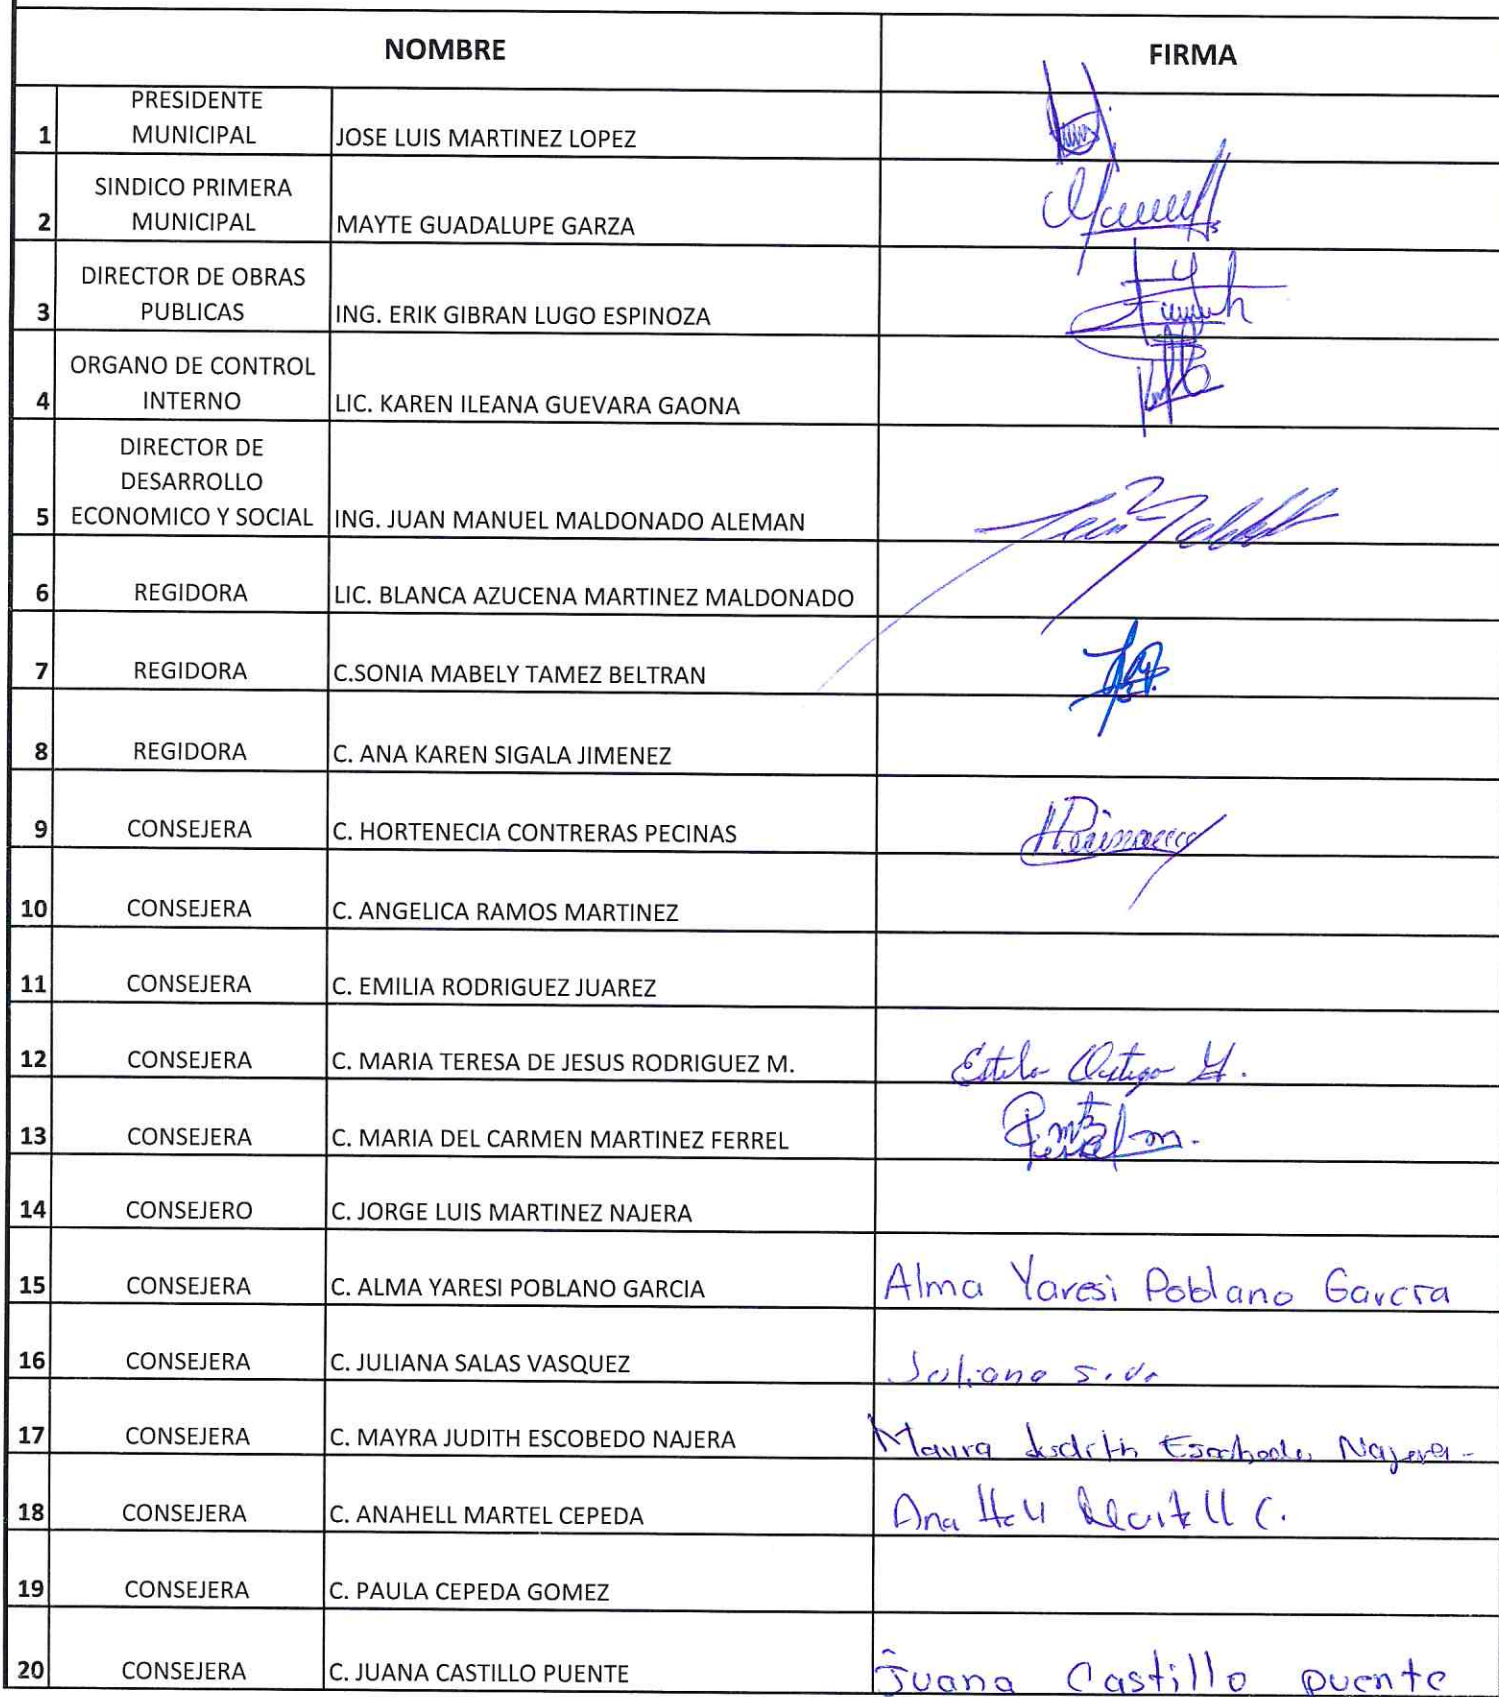 NOMBRE FIRMA
1 PRESIDENTE MUNICIPAL JOSE LUIS MARTINEZ LOPEZ
2 SINDICO PRIMERA MUNICIPAL MAYTE GUADALUPE GARZA
3 DIRECTOR DE OBRAS PUBLICAS ING. ERIK GIBRAN LUGO ESPINOZA
4 ORGANO DE CONTROL INTERNO LIC. KAREN ILEANA GUEVARA GAONA
5 DIRECTOR DE DESARROLLO ECONOMICO Y SOCIAL ING. JUAN MANUEL MALDONADO ALEMAN
6 REGIDORA LIC. BLANCA AZUCENA MARTINEZ MALDONADO
7 REGIDORA C.SONIA MABELY TAMEZ BELTRAN
8 REGIDORA C. ANA KAREN SIGALA JIMENEZ
9 CONSEJERA C. HORTENECIA CONTRERAS PECINAS
10 CONSEJERA C. ANGELICA RAMOS MARTINEZ
11 CONSEJERA C. EMILIA RODRIGUEZ JUAREZ
12 CONSEJERA C. MARIA TERESA DE JESUS RODRIGUEZ M.
13 CONSEJERA C. MARIA DEL CARMEN MARTINEZ FERREL
14 CONSEJERO C. JORGE LUIS MARTINEZ NAJERA
15 CONSEJERA C. ALMA YARESI POBLANO GARCIA Alma Yaresi Poblano Garcia
16 CONSEJERA C. JULIANA SALAS VASQUEZ Juliana S.
17 CONSEJERA C. MAYRA JUDITH ESCOBEDO NAJERA Mayra Judith Najera
18 CONSEJERA C. ANAHELL MARTEL CEPEDA Ana Hell C.
19 CONSEJERA C. PAULA CEPEDA GOMEZ
20 CONSEJERA C. JUANA CASTILLO PUENTE Juana Castillo puente